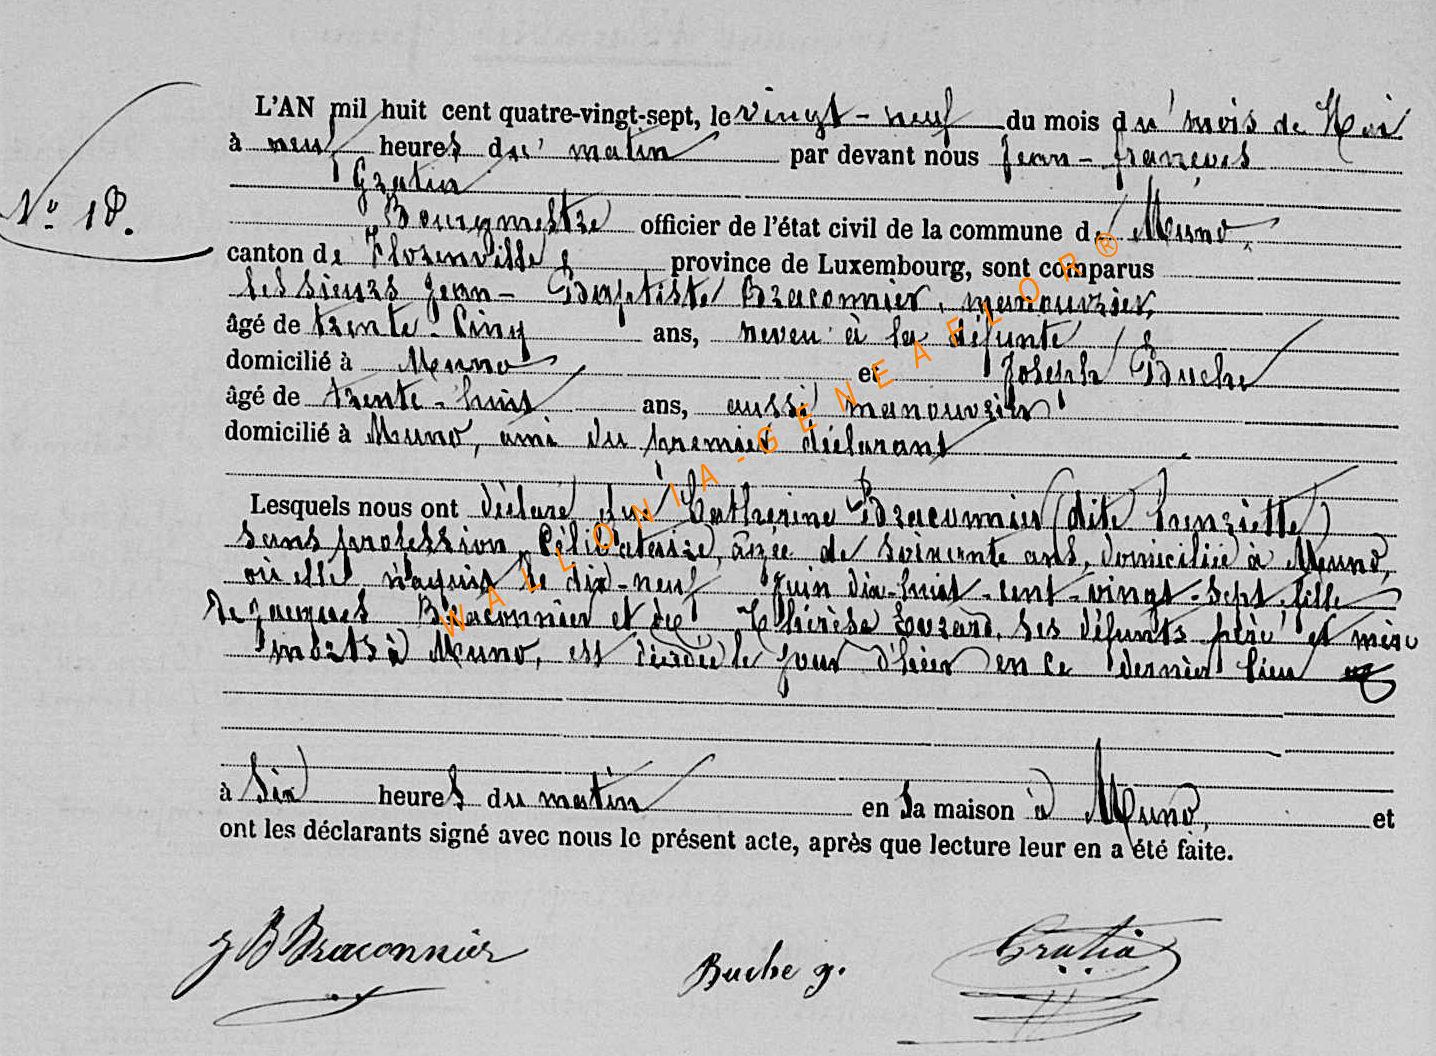 L'AN mil huit cent quatre-vingt-sept, le vingt-neuf du mois du mois de Mai
à neuf heures du matin par devant nous Jean-françois
Gratia
Bourgmestre officier de l'état civil de la commune de Muno,
N° 18.
canton de Florenville, province de Luxembourg, sont comparus
les sieurs Jean-Baptiste Braconnier, manouvrier,
âgé de trente-cinq ans, neveu à la défunte
domicilié à Muno et Joseph Buche
âgé de trente-huit ans, aussi manouvrier
domicilié à Muno, ami du premier déclarant
Lesquels nous ont déclaré que Catherine Braconnier (dite henriette)
sans profession, Célibataire, âgée de soixante ans, domiciliée à Muno,
où elle naquit le dix-neuf Juin dix-huit-cent-vingt-sept, fille
de Jacques Braconnier et de Thérèse Lozard, ses défunts père et mère
morts à Muno, est décédée le jour d'hier en ce dernier lieu
à six heures du matin en sa maison à Muno, et
ont les déclarants signé avec nous le présent acte, après que lecture leur en a été faite.
J B Braconnier Buche J. Gratia
WALLONIA-GENEAFLOR®